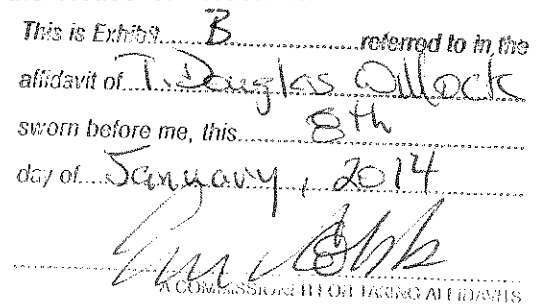 This is Exhibit B referred to in the
affidavit of T. Douglas Willock
sworn before me, this 8th
day of January, 2014
A COMMISSIONER FOR TAKING AFFIDAVITS